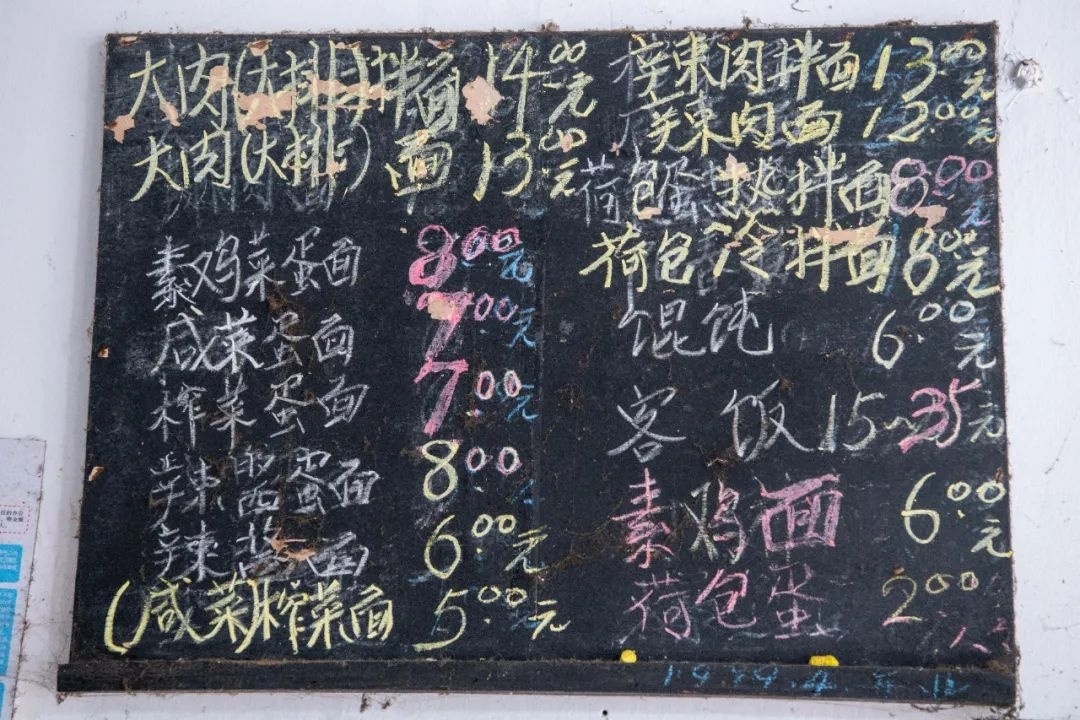 大肉(大排)拌面 14.00元
大肉(大排)面 13.00元
素鸡菜蛋面 8.00元
咸菜蛋面 7.00元
榨菜蛋面 7.00元
辣酱蛋面 8.00
辣酱面 6.00元
(咸菜)榨菜面 5.00元
辣肉拌面 13.00元
辣肉面 12.00元
荷包蛋热拌面 8.00元
荷包冷拌面 8.00元
馄饨 6.00元
客饭 15~35元
素鸡面 6.00元
荷包蛋 2.00